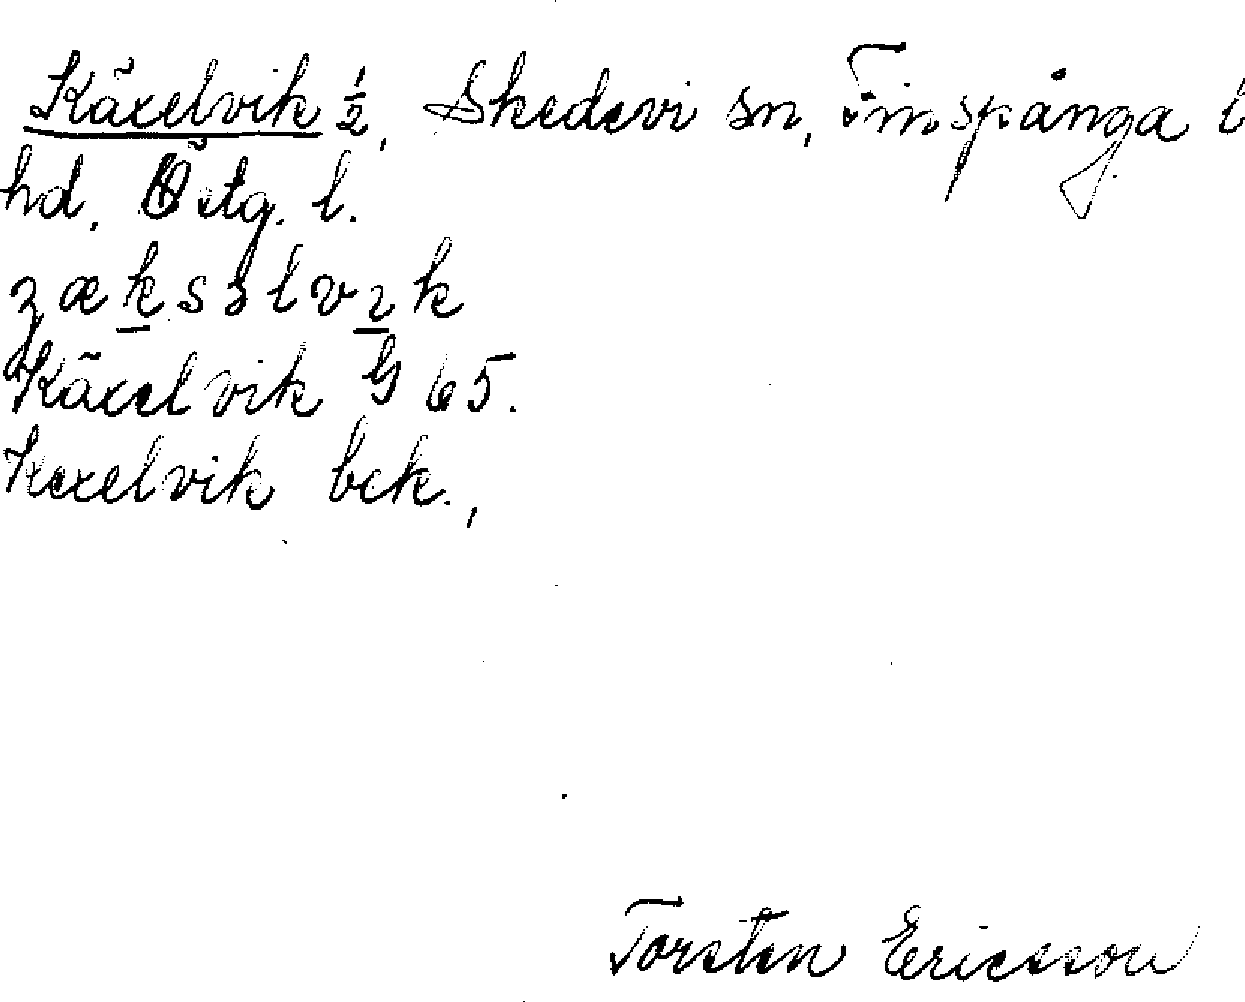 Käxelvik ½, Skedevi sn, Finspånga l
hd, Östg. l.
Käxelvik G 65.
Kexelvik bek.,
Torsten Ericsson